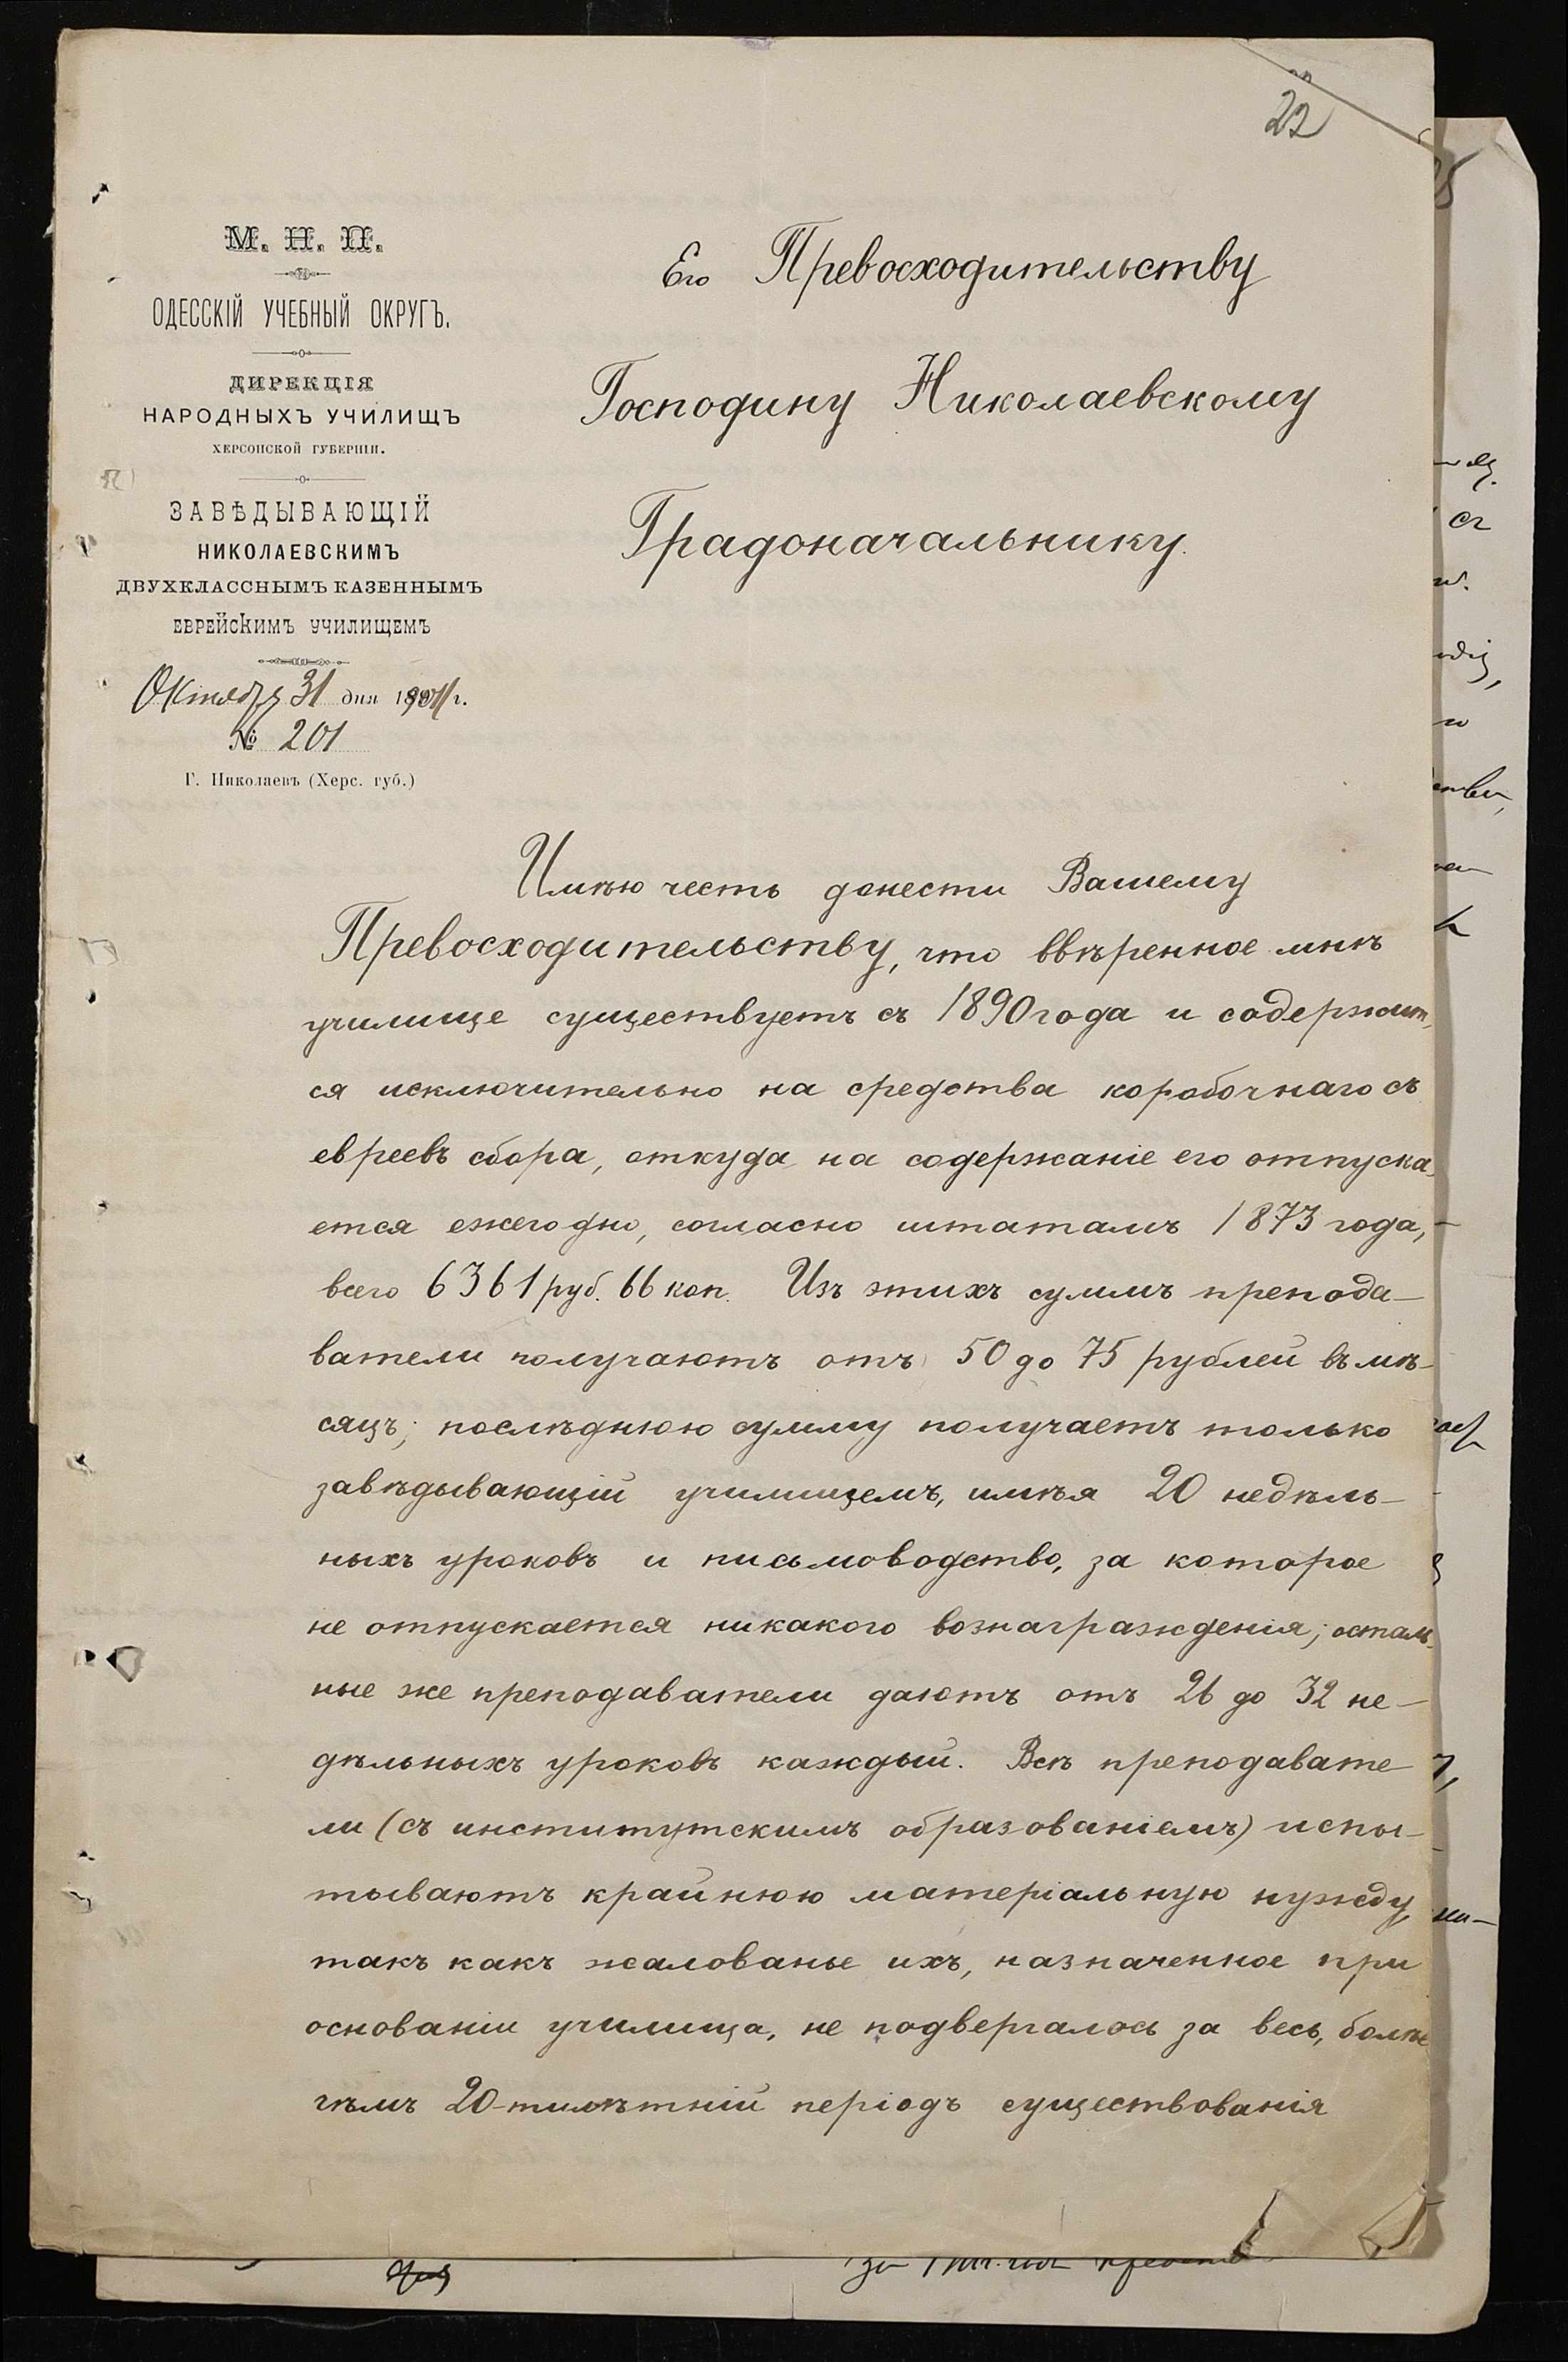 22
М. Н. П.
ОДЕССКІЙ УЧЕБНЫЙ ОКРУГЪ.
ДИРЕКЦІЯ
НАРОДНЫХЪ УЧИЛИЩЪ
ХЕРСОНСКОЙ ГУБЕРНІИ.
ЗАВѢДЫВАЮЩІЙ
НИКОЛАЕВСКИМЪ
ДВУХКЛАССНЫМЪ КАЗЕННЫМЪ
ЕВРЕЙСКИМЪ УЧИЛИЩЕМЪ
Октября 31 дня 1911 г.
№ 201
Г. Николаевъ (Херс. губ.)
Его Превосходительству
Господину Николаевскому
Градоначальнику.
Имѣю честь донести Вашему
Превосходительству, что ввѣренное мнѣ
училище существуетъ съ 1890 года и содержит-
ся исключительно на средства коробочнаго съ
евреевъ сбора, откуда на содержаніе его отпуска-
ется ежегодно, согласно штатамъ 1873 года,
всего 6361 руб. 66 коп. Изъ этихъ суммъ препода-
ватели получаютъ отъ 50 до 75 рублей въ мѣ-
сяцъ; послѣднюю сумму получаетъ только
завѣдывающій училищемъ, имѣя 20 недѣль-
ныхъ уроковъ и письмоводство, за которое
не отпускается никакого вознагражденія; осталь-
ные же преподаватели даютъ отъ 26 до 32 не-
дѣльныхъ уроковъ каждый. Всѣ преподавате
ли (съ институтскимъ образованіемъ) испы-
тываютъ крайнюю матеріальную нужду,
такъ какъ жалованье ихъ, назначенное при
основаніи училища, не подвергалось за весь, болѣе
чѣмъ 20-тилѣтній періодъ существованія